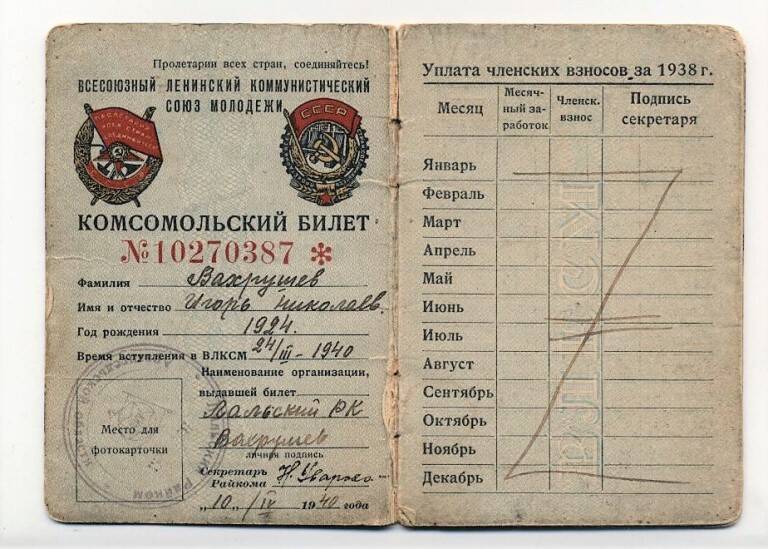 Пролетарии всех стран, соединяйтесь!
ВСЕСОЮЗНЫЙ ЛЕНИНСКИЙ КОММУНИСТИЧЕСКИЙ
СОЮЗ МОЛОДЕЖИ
СССР
КОМСОМОЛЬСКИЙ БИЛЕТ
№10270387 *
Фамилия Вахрушев
Имя и отчество Игорь Николаев.
Год рождения 1924.
Время вступления в ВЛКСМ 24/III-1940
Наименование организации,
выдавшей билет
Лальский РК
Вахрушев
личная подпись
Место для
фотокарточки
Секретарь
Райкома
„10„ /IV 1940 года
Уплата членских взносов за 1938 г.
Месяц
Месяч-
ный за-
работок
Членск.
взнос
Подпись
секретаря
Январь
Февраль
Март
Апрель
Май
Июнь
Июль
Август
Сентябрь
Октябрь
Ноябрь
Декабрь